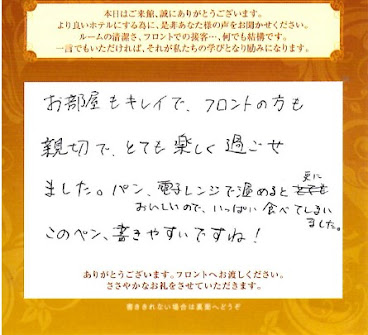 本日はご来館、誠にありがとうございます。
より良いホテルにする為に、是非あなた様の声をお聞かせください。
ルームの清潔さ、フロントでの接客…、何でも結構です。
一言でもいただければ、それが私たちの学びとなり励みになります。
お部屋もキレイで、フロントの方も
親切で、とても楽しく過ごせ
ました。パン、電子レンジで温めると更に
おいしいので、いっぱい食べてしまい
ました。
このペン、書きやすいですね!
ありがとうございます。フロントへお渡しください。
ささやかなお礼をさせていただきます。
書ききれない場合は裏面へどうぞ